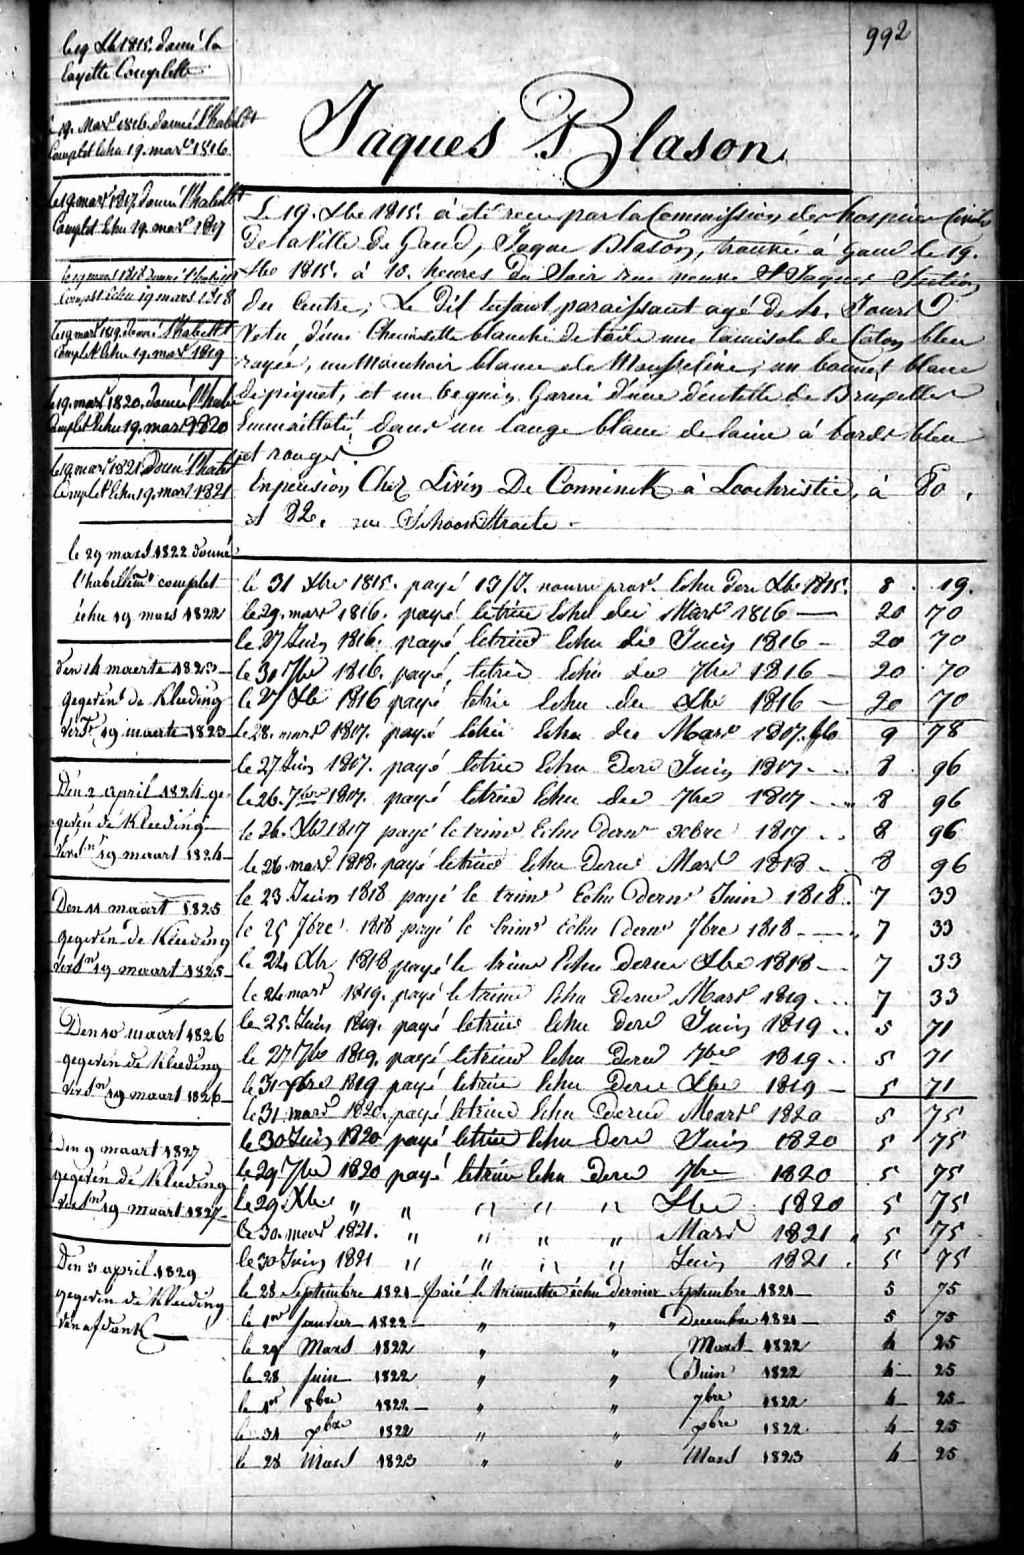 992
Jaques Blason
le 19 Xbre 1815. donné la
layette Complette
le 19. Mars 1816. donné l'habillt
Complet Echu 19. mars 1816
le 19 mars 1817. donné l'habillt
Complet Echu 19. mars 1817
le 19 mars 1818 donné l'habillt
Complet Echu 19 mars 1818
le 19 mars 1819. donné l'habillt
complet Echu 19. mars 1819
le 19. mars 1820. donné l'habi
Complet Echu 19. mars 1820
le 19 mars 1821 donné l'habillt
Complet Echu 19. mars 1821
le 29 mars 1822 donné
l'habillemt complet
échu 19 mars 1822
den 14 maerte 1823
gegeven de Kleeding
Verst 19 maerte 1823
Den 2 april 1824 ge-
geven de Kleeding
Verstn 19 maart 1824
Den 11 maart 1825
gegeven de Kleeding
Verstn 19 maart 1825
Den 10 maart 1826
gegeven de Kleeding
Verstn 19 maart 1826
Den 9 maart 1827
gegeven de Kleeding
Verstn 19 maart 1827
Den 3 april 1829
gegeven de Kleeding
van afdank
Le 19. Xbre 1815. à été recu par la Commission des hospices Civils
de la Ville de Gand, Jaque Blason, trouvé à gand le 19.
Xbre 1815. à 10. heures du Soir rue neuve St Jaques Section
du Centre; Le Dit Enfant paraissant agé de 4. Jours
Vetu d'une Chemisette blanche de toile une Camisole de Coton bleu
rayée, un Mouchoir blanc de Mousseline, un bonnet blanc
de piquet, et un beguin Garni d'une dentelle de Bruxelles
Emmaillotté dans un lange blanc de laine à bords bleu
et rouges.
En pension Chez Livin De Conninck à Loochristie, à 80.
et 82. rue Schoonstraete
le 31 Xbre 1815. payé 13/J. nourre prov. Echu dere Xbre 1815. 8 . 19.
le 29. mars 1816. payé letrim Echu der Mars 1816 — 20 70
le 27 Juin 1816. payé letrim Echu de Juin 1816 — 20 70
le 30 7bre 1816. payé, letrim Echu de 7bre 1816 — 20 . 70
le 27 Xbre 1816 payé letrim Echu de Xbre 1816 — 20 70
le 28. mars 1817. payé letrim Echu de Mars 1817. 9 78
le 27 Juin 1817. payé letrim Echu dere Juin 1817 - 8 . 96
le 26. 7bre 1817. payé letrim Echu de 7bre 1817 - 8 96
le 26. Xbre 1817 payé le trimr Echu dernr xbre 1817 . 8 96
le 26 mars 1818. payé letrim Echu derne Mars 1818 - 8 96
le 23 Juin 1818 payé le trimr Echu dernr Juin 1818. 7 33
le 25 7bre 1818 payé le trimr Echu dernr 7bre 1818 - 7 33
le 24 Xbr 1818 payé le trimr Echu derne Xbre 1818 - 7 33
le 24 mars 1819. payé letrim Echu derne Mars 1819 . 7 33
le 25. Juin 1819. payé letrim Echu dere Juin 1819 . 5 71
le 27 7bre 1819. payé letrim Echu derne 7bre 1819 . 5 71
le 31 xbre 1819 payé letrim Echu derne Xbre 1819 — 5 71
le 31 mars 1820. payé letrim Echu derne Mars 1820 5 75
le 30 Juin 1820 payé letrim Echu dere Juin 1820 5 75
le 29 7bre 1820 payé letrim Echu dere 7bre 1820 5 75
le 29 Xbre " " " " " Xbre 1820 5 75
le 30. mars 1821. " " " " Mars 1821 . 5 75
le 30 Juin 1821 " " " " Juin 1821 . 5 75
le 28 Septembre 1821 - paié le trimestre échu dernier Septembre 1821 — 5 75
le 1er Janvier 1822 — " " Decembre 1821 — 5 75
le 29 Mars 1822 " " Mars 1822 4 25
le 28 Juin 1822 " " Juin 1822 4 25
le 1er 8bre 1822 — " " 7bre 1822 4 25
le 31 xbre 1822 " " xbre 1822 4 25
le 28 Mars 1823 " " Mars 1823 4 25